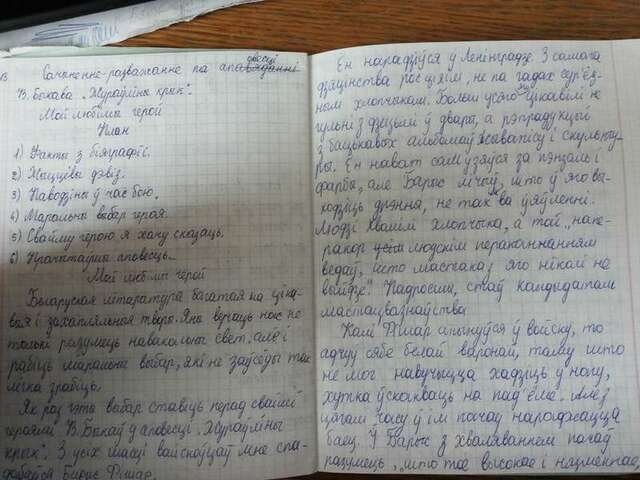 Сачыненне-разважанне па аповесці
В. Быкава "Жураўліны крык".
Мой любімы герой
План
1) Факты з біяграфіі.
2) Жыццёвы дэвіз.
3) Паводзіны ў час бою.
4) Маральны выбар героя.
5) Свайму герою я хачу сказаць.
6) Прачытаўшы аповесць...
Мой любімы герой
Беларуская літаратура багатая на ціка-
выя і захапляльныя творы. Яны вучаць нас не
толькі разумець навакольны свет, але і
рабіць маральны выбар, які не заўсёды так
лёгка зрабіць.
Як раз гэты выбар ставіць перад сваімі
героямі В. Быкаў у аповесці "Жураўліны
крык". З усіх шасці вайскоўцаў мне спа-
дабаўся Барыс Фішар.
Ён нарадзіўся у Ленінградзе. З самага
дзяцінства рос ціхім, не па гадах сур'ёз-
ным хлопчыкам. Больш усяго яго цікавілі не
гульні з дзецьмі ў двары, а рэпрадукцыі
з бацькавых альбомаў жывапісу і скульпту-
ры. Ён нават сам узяўся за пэндзаль і
фарбы, але Барыс лічыў, што ў яго вы-
ходзіць дрэнна, не так як ва ўяўленні.
Людзі хвалілі хлопчыка, а той "напе-
ракор людскім перакананням
ведаў, што мастака з яго ніколі не
выйдзе". Падросшы, стаў кандыдатам
мастацвазнаўства.
Калі Фішар апынуўся ў войску, то
адчуў сябе белай варонай, таму што
не мог навучыцца хадзіць у нагу,
хутка ўскокваць на пад'ёме. Але з
цягам часу ў ім пачаў нараджацца
баец. У Барыс з хваляваннем пачаў
разумець, "што тое высокае і нязменнае,